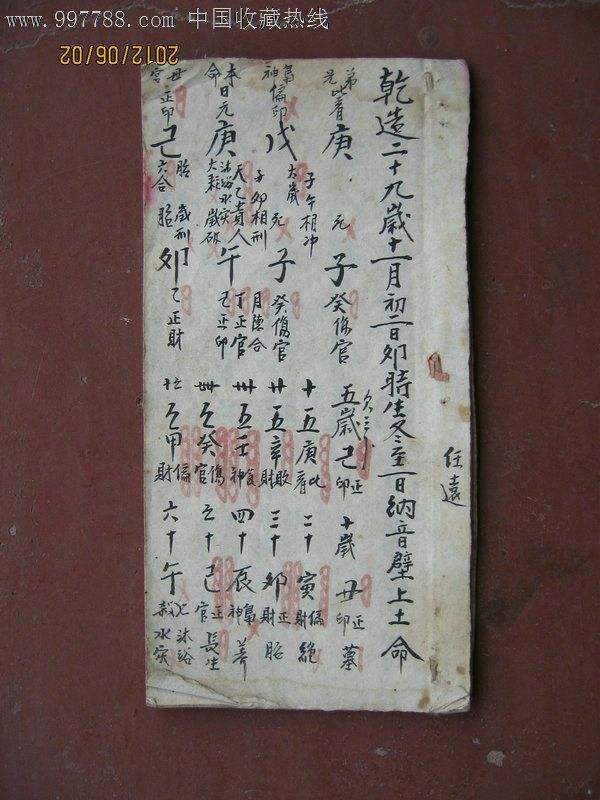 www.997788.com 中国收藏热线
2012/06/02
任遠
乾造二十九歲十一月初二日卯時生冬至一日納音壁上土命
弟兄比肩 庚 子午相冲 死 子 癸傷官
五歲己正印 十歲丑正印 墓
梟神偏印 戊 太歲 子卯相刑 死 子 癸傷官 月德合
十五庚比肩 二十寅偏財 絕
本命日元 庚 天乙貴人 沐浴水宲 大耗 歲破 午 丁正官 己正印
廿五辛敗財 三十卯正財 胎
卅五壬食神 四十辰梟神 養
母宮正印 己 胎 六合 歲刑 胎 卯 乙正財
癸傷官 己正官 長生
甲偏財 六十午 沐浴